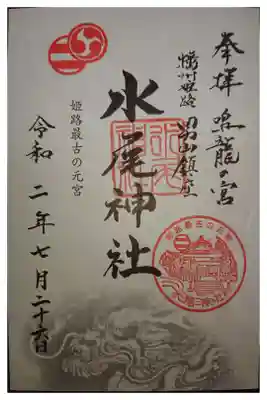 奉拝 鳴龍の宮
播州姫路 男山鎮座
水尾神社
姫路最古の元宮
令和二年七月二十六日